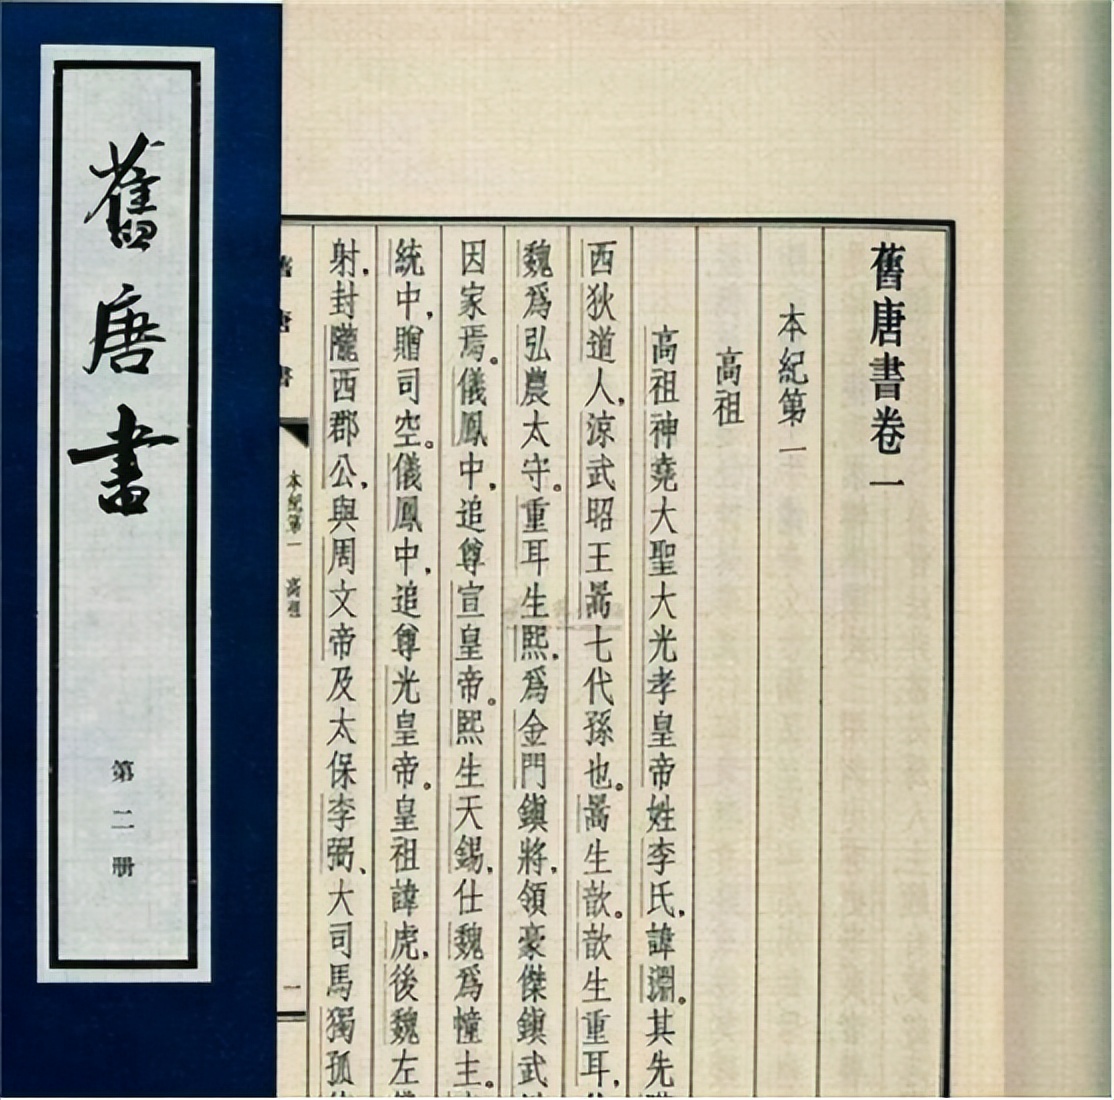 舊唐書
第二册
舊唐書卷一
本紀第一
高祖
高祖神堯大聖大光孝皇帝姓李氏，諱淵。其先
西狄道人，涼武昭王暠七代孫也。暠生歆。歆生重耳，
魏爲弘農太守。重耳生熙，爲金門鎮將，領豪傑鎮武
因家焉。儀鳳中，追尊宣皇帝。熙生天錫，仕魏爲幢主。
統中，贈司空。儀鳳中，追尊光皇帝。皇祖諱虎，後魏左
射，封隴西郡公，與周文帝及太保李弼、大司馬獨孤
本紀第一 高祖
一